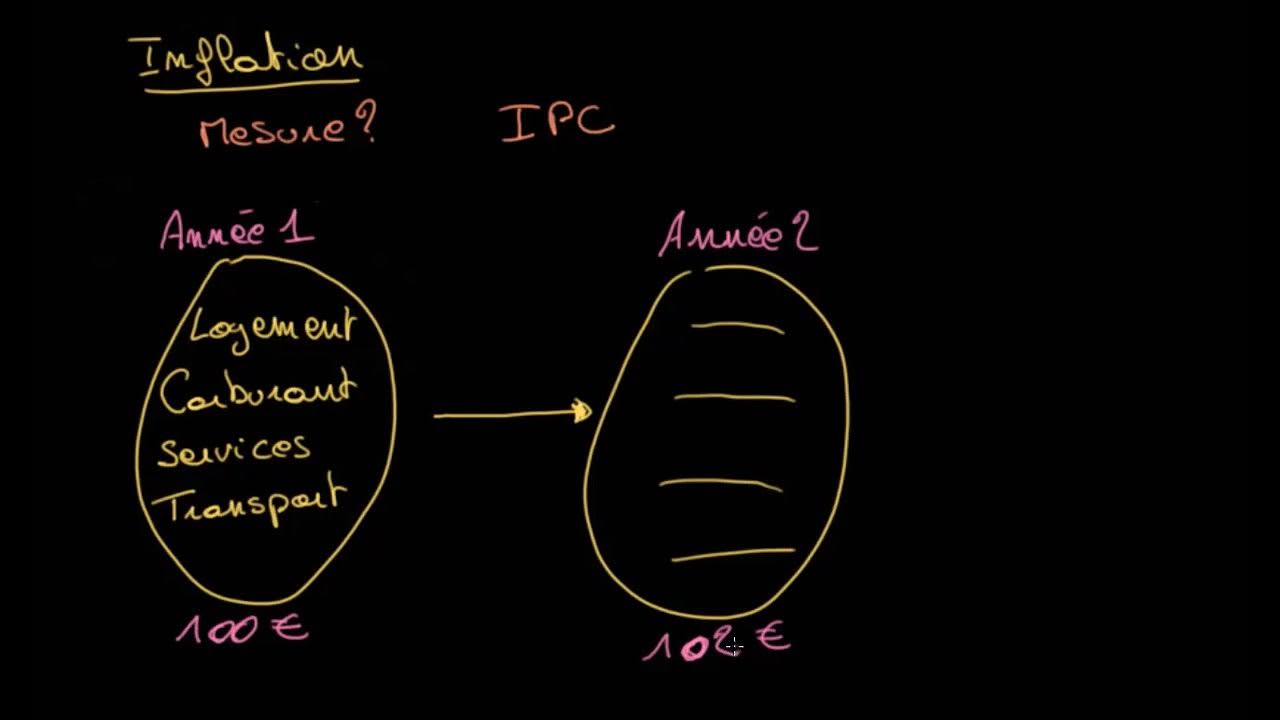 Inflation
Mesure? IPC
Année 1 Année 2
Logement
Carburant
Services
Transport
100 € 102 €